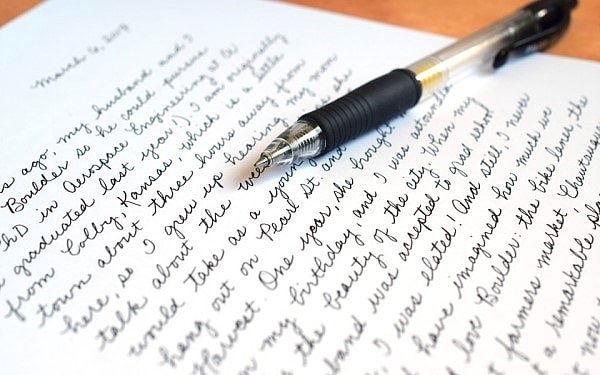 March 6, 2013
s ago. my husband and I
Boulder so he could pursue
PhD in Aerospace Engineering at CU
graduated last year.) I am originally
from Colby, Kansas, which is a little
town about three hours away from
here, so I grew up hearing my mom
talk about the
would take as a young
hang out on Pearl St. and
Harvest. One year, she brought m
on my birthday, and I was
the beauty of the city. When my
husband was accepted to grad school
, I was elated! And still, I never
have imagined how much we
love Boulder: the bike lanes, the
farmers market, Chautauqua
a remarkable pla